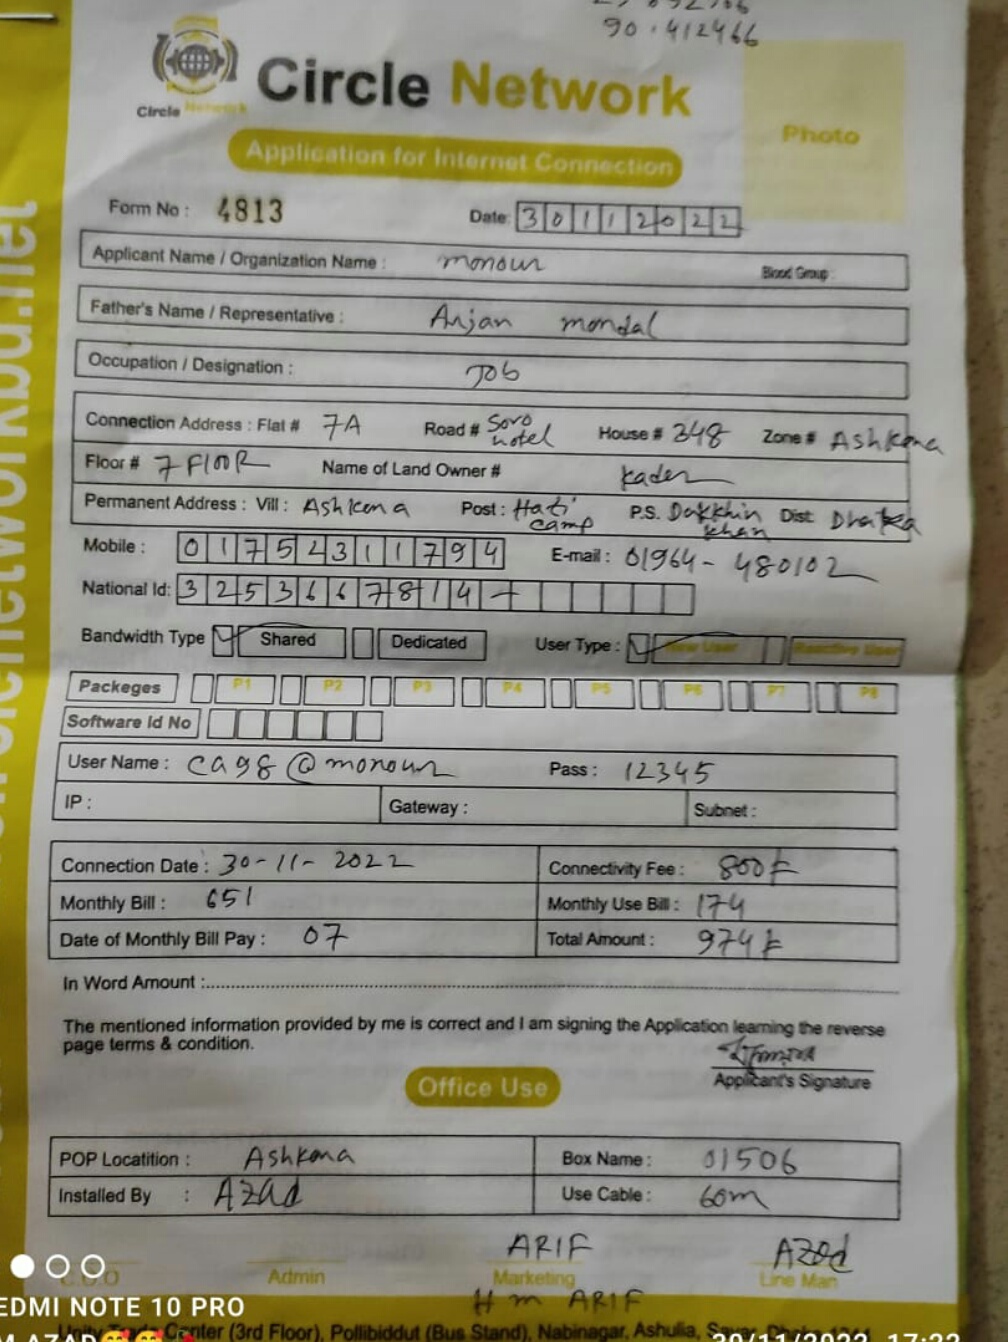 90 412466
Circle Network
Circle Network
Photo
Application for Internet Connection
Form No : 4813
Date: 30112022
Applicant Name / Organization Name : monour
Blood Group :
Father's Name / Representative : Anjan mondal
Occupation / Designation : Job
Connection Address : Flat # 7A Road # Soro hotel House # 348 Zone # Ashkona
Floor # 7 FlOOR Name of Land Owner # kader
Permanent Address : Vill : Ashkona Post : Hati camp P.S. Dakkhin khan Dist Dhaka
Mobile : 01752311794 E-mail : 01964-480102
National Id: 3253667814
Bandwidth Type Shared Dedicated User Type : New User Reactive User
Packeges P1 P2 P3 P4 P5 P6 P7 P8
Software Id No
User Name : ca98@monour Pass : 12345
IP : Gateway : Subnet :
Connection Date : 30-11-2022 Connectivity Fee : 800
Monthly Bill : 651 Monthly Use Bill : 174
Date of Monthly Bill Pay : 07 Total Amount : 974
In Word Amount :
The mentioned information provided by me is correct and I am signing the Application learning the reverse
page terms & condition.
Applicant's Signature
Office Use
POP Locatition : Ashkona Box Name : 01506
Installed By : Azad Use Cable : 60m
ARIF Azad
C.O.O Admin Marketing Line Man
H m ARIF
REDMI NOTE 10 PRO
Center (3rd Floor), Pollibiddut (Bus Stand), Nabinagar, Ashulia,
30/11/2022 17:32